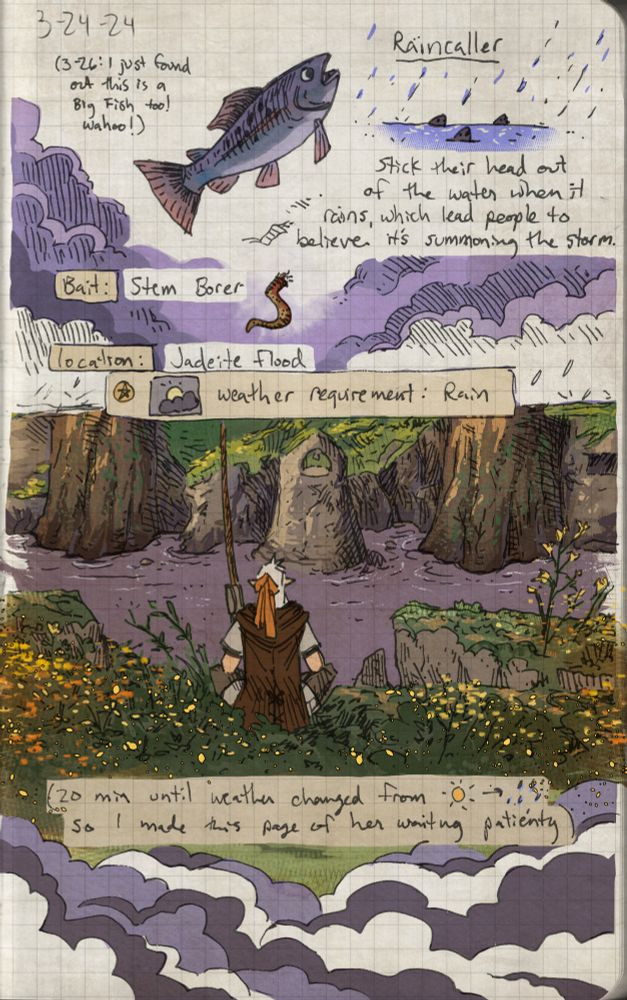 3-24-24
(3-26: I just found
out this is a
Big Fish too!
wahoo!)
Raincaller
Stick their head out
of the water when it
rains, which lead people to
believe it's summoning the storm.
Bait: Stem Borer
location: Jadeite Flood
weather requirement: Rain
(20 min until weather changed from
so I made this page of her waiting patiently)